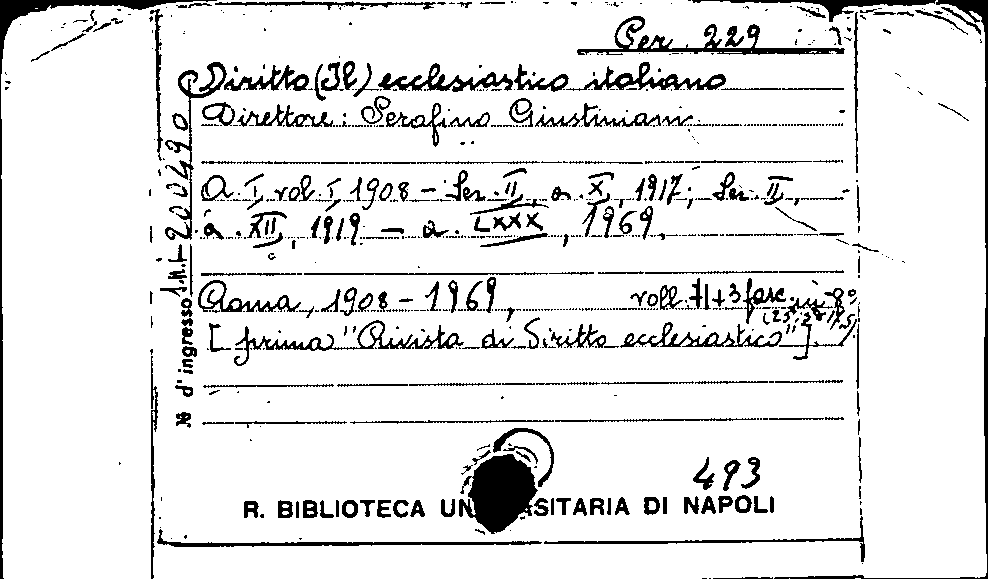 Per 229
Diritto (Il) ecclesiastico italiano
Direttore: Serafino Giustiniani
A. I, vol. I, 1908 - Ser. II, a. X, 1917; Ser. II,
a. XII, 1919 - a. LXXX, 1969.
Roma, 1908-1969, voll. 71+3 fasc. in-8°
[prima "Rivista di Diritto ecclesiastico"].
N° d'ingresso 200490
493
R. BIBLIOTECA UN SITARIA DI NAPOLI